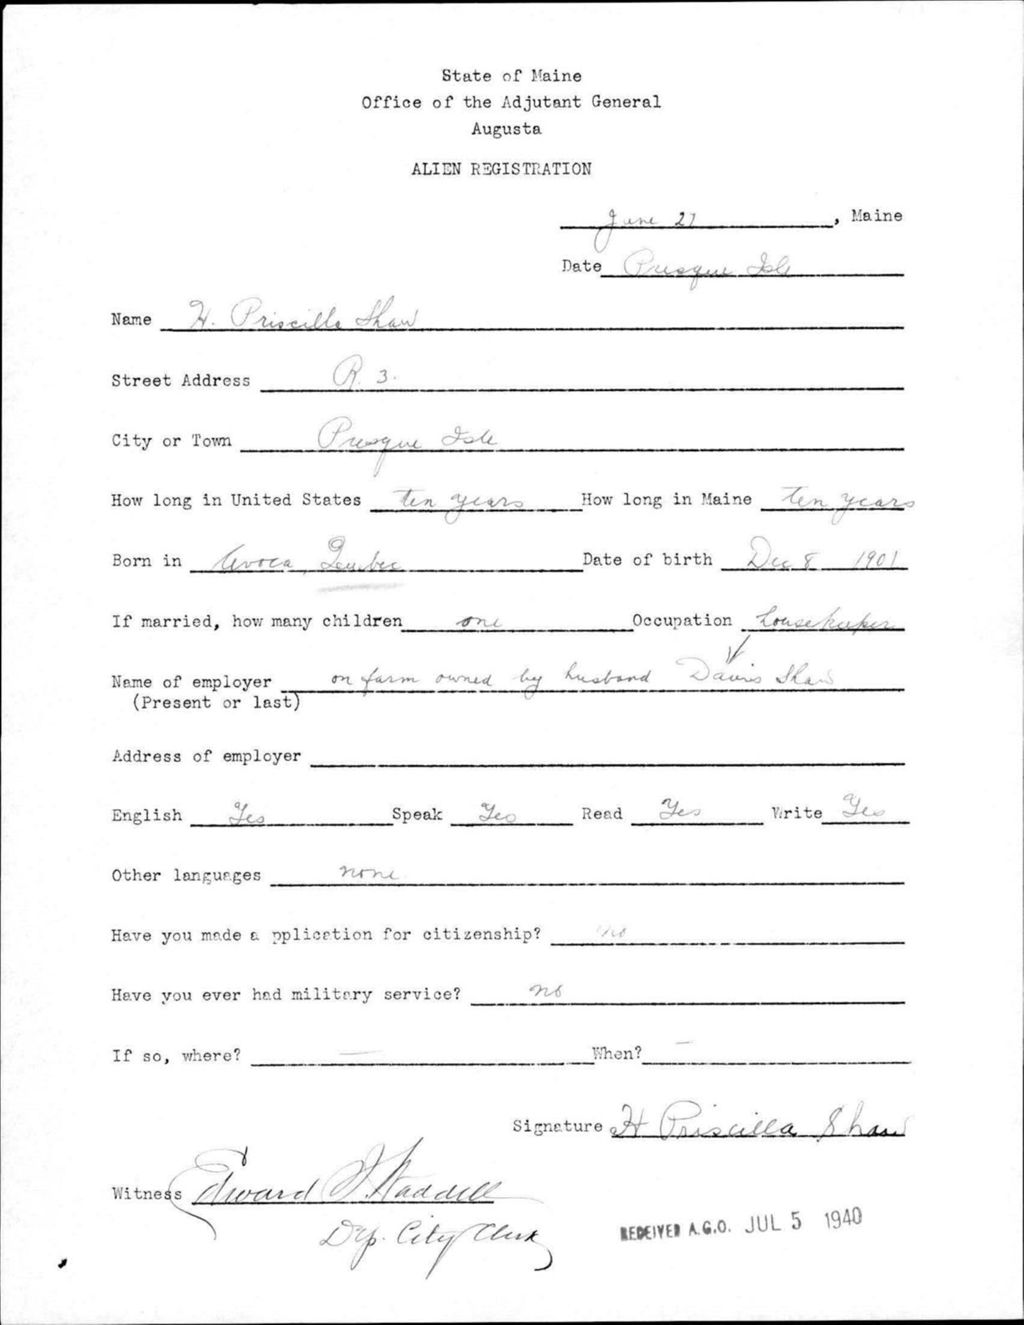 State of Maine
Office of the Adjutant General
Augusta
ALIEN REGISTRATION
June 27, Maine
Date Presque Isle
Name H. Priscilla Shaw
Street Address R. 3.
City or Town Presque Isle
How long in United States ten years How long in Maine ten years
Born in Avoca, Quebec Date of birth Dec 8 1901
If married, how many children one Occupation housekeeper
Name of employer on farm owned by husband Shaw
(Present or last)
Address of employer
English Yes Speak Yes Read Yes Write Yes
Other languages none
Have you made a pplication for citizenship? no
Have you ever had military service? no
If so, where? — When? —
Signature H Priscilla Shaw
Witness Edward Waddell
Dep. City Clerk
RECEIVED A.G.O. JUL 5 1940